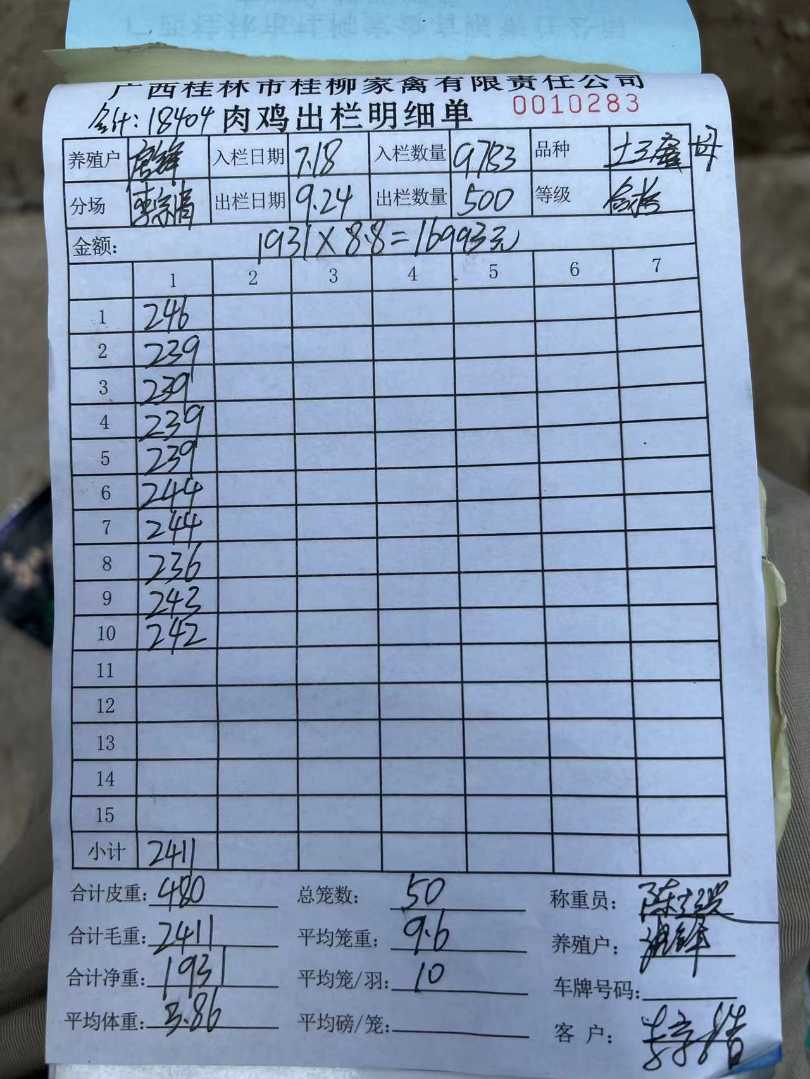 广西桂林市桂柳家禽有限责任公司
合计:18404 肉鸡出栏明细单 0010283
养殖户 入栏日期 7.18 入栏数量 9783 品种 母
分场 出栏日期 9.24 出栏数量 500 等级 合格
金额: 1931×8.8=16993元
1 2 3 4 5 6 7
1 246
2 239
3 239
4 239
5 239
6 244
7 244
8 236
9 243
10 242
11
12
13
14
15
小计 2411
合计皮重: 480 总笼数: 50 称重员:
合计毛重: 2411 平均笼重: 9.6 养殖户:
合计净重: 1931 平均笼/羽: 10 车牌号码:
平均体重: 3.86 平均磅/笼: 客 户: